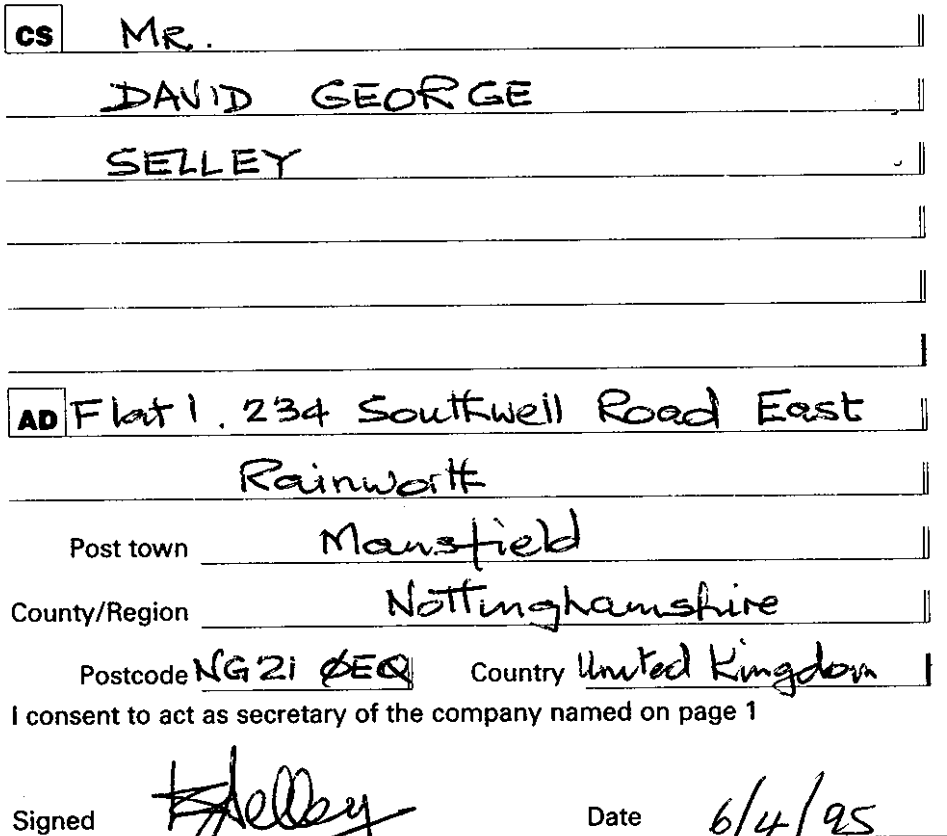 CS MR.
DAVID GEORGE
SELLEY
AD Flat 1. 234 Southwell Road East
Rainworth
Post town Mansfield
County/Region Nottinghamshire
Postcode NG21 ØEQ Country United Kingdom
I consent to act as secretary of the company named on page 1
Signed Selley Date 6/4/95